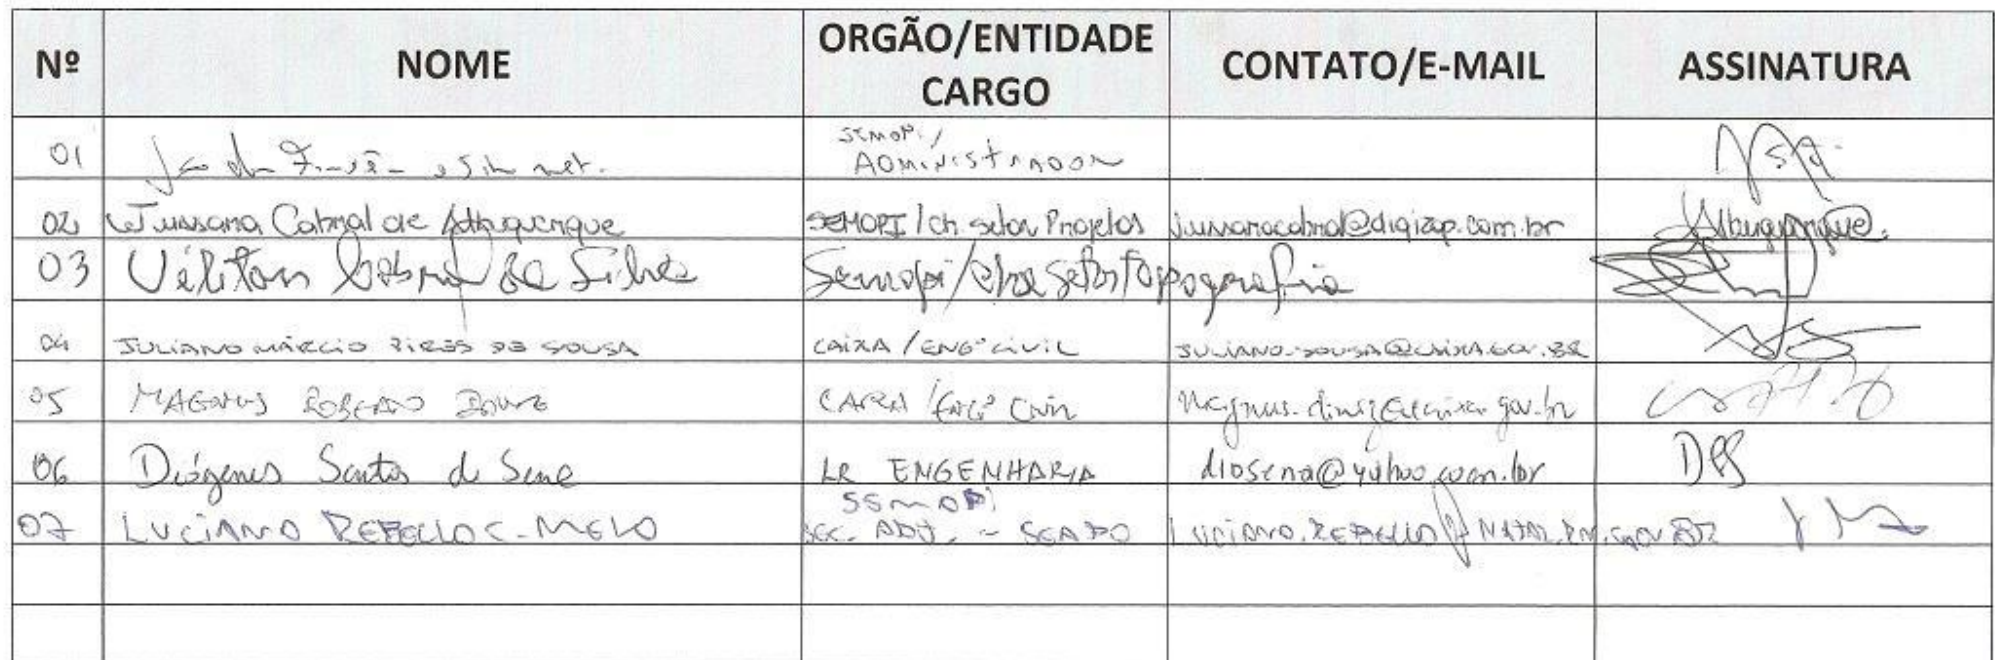 Nº NOME ORGÃO/ENTIDADE CARGO CONTATO/E-MAIL ASSINATURA
01 SEMOPI/ ADMINISTRADOR
02 Jussara Cabral de Albuquerque SEMOPI/ch setor Projetos jussaracabral@digizap.com.br Albuquerque
03 Véliton Cabral da Silva Semopi/ setor topografia
04 JULIANO MÁRCIO PIRES DE SOUSA CAIXA/ENGº CIVIL JULIANO.SOUSA@CAIXA.GOV.BR
05 MAGNUS CAIXA/ENGº CIVIL
06 Diógenes Santos de Sena LR ENGENHARIA diosena@yahoo.com.br DPS
07 LUCIANO REBELLO C. MELO SEMOPI SEC. ADJ. -